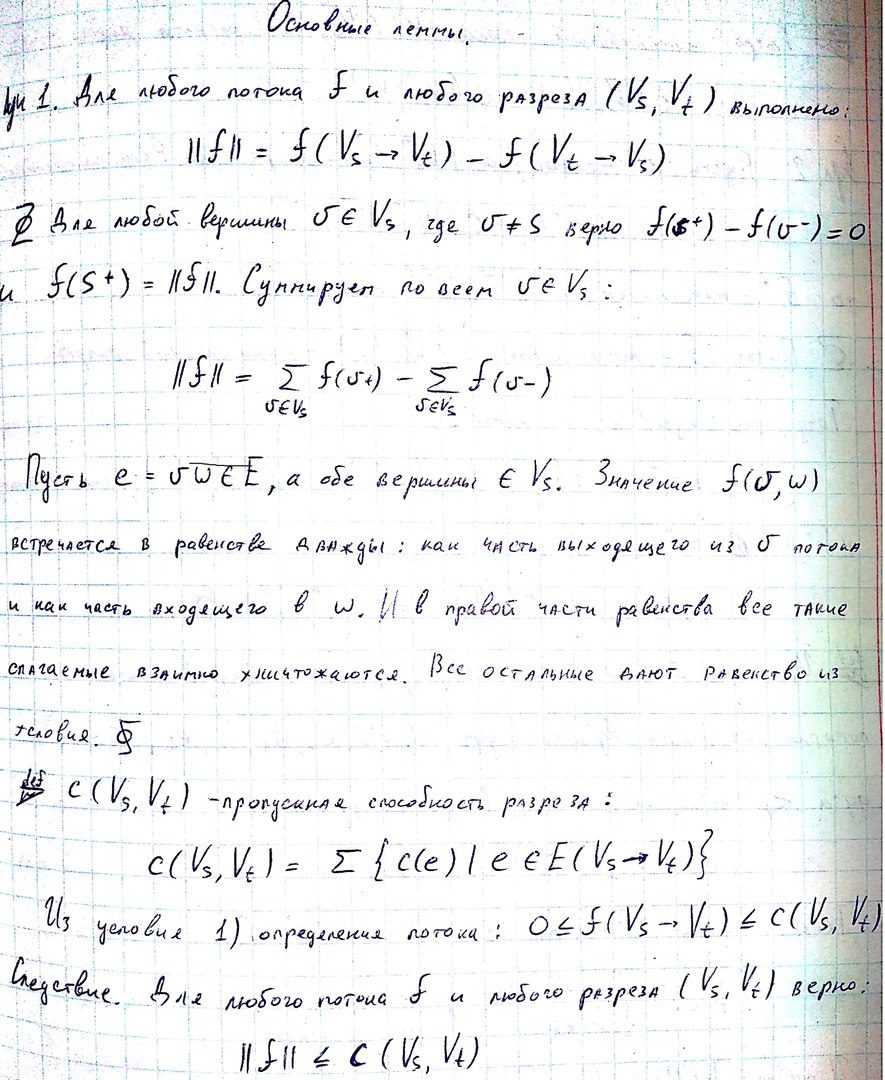 Основные леммы.
Лм 1. Для любого потока f и любого разреза (Vₛ, Vₜ) выполнено:
||f|| = f(Vₛ → Vₜ) − f(Vₜ → Vₛ)
Для любой вершины υ ∈ Vₛ, где υ ≠ s верно f(s⁺) − f(υ⁻) = 0
и f(s⁺) = ||f||. Суммируем по всем υ ∈ Vₛ:
||f|| = Σ f(υ+) − Σ f(υ−)
υ∈Vₛ υ∈Vₛ
Пусть e = υw ∈ E, а обе вершины ∈ Vₛ. Значение f(υ, w)
встречается в равенстве дважды: как часть выходящего из υ потока
и как часть входящего в w. И в правой части равенства все такие
слагаемые взаимно уничтожаются. Все остальные дают равенство из
условия.
def c(Vₛ, Vₜ) - пропускная способность разреза:
c(Vₛ, Vₜ) = Σ {c(e) | e ∈ E(Vₛ → Vₜ)}
Из условия 1) определения потока: 0 ≤ f(Vₛ → Vₜ) ≤ c(Vₛ, Vₜ)
Следствие. Для любого потока f и любого разреза (Vₛ, Vₜ) верно:
||f|| ≤ c(Vₛ, Vₜ)